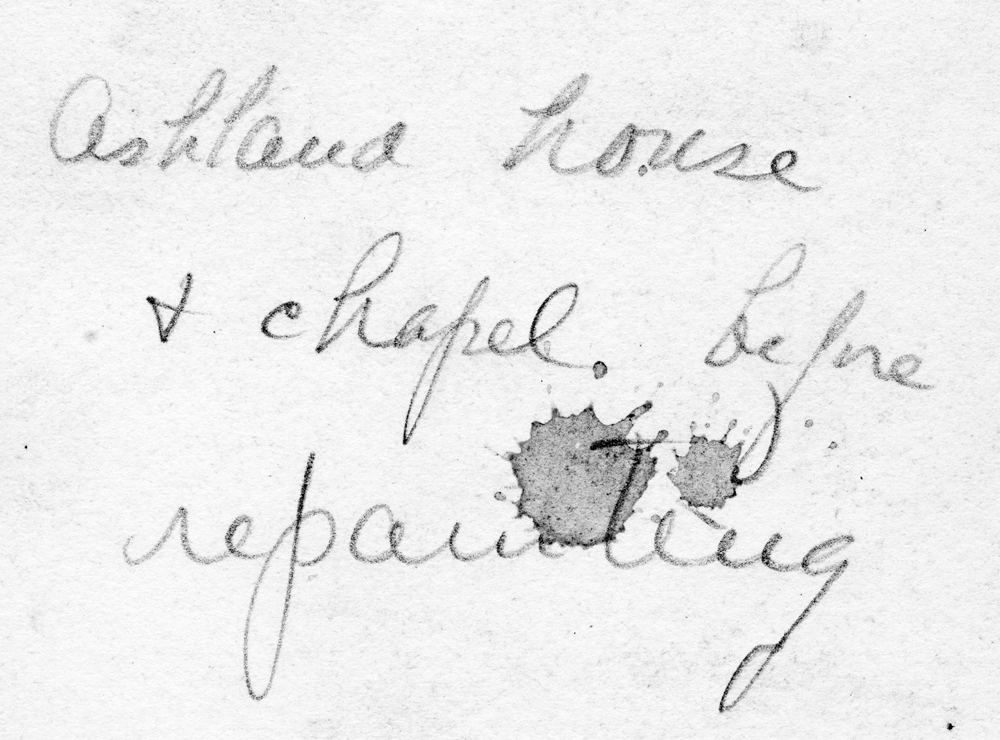 Ashland house
& chapel. before
repainting